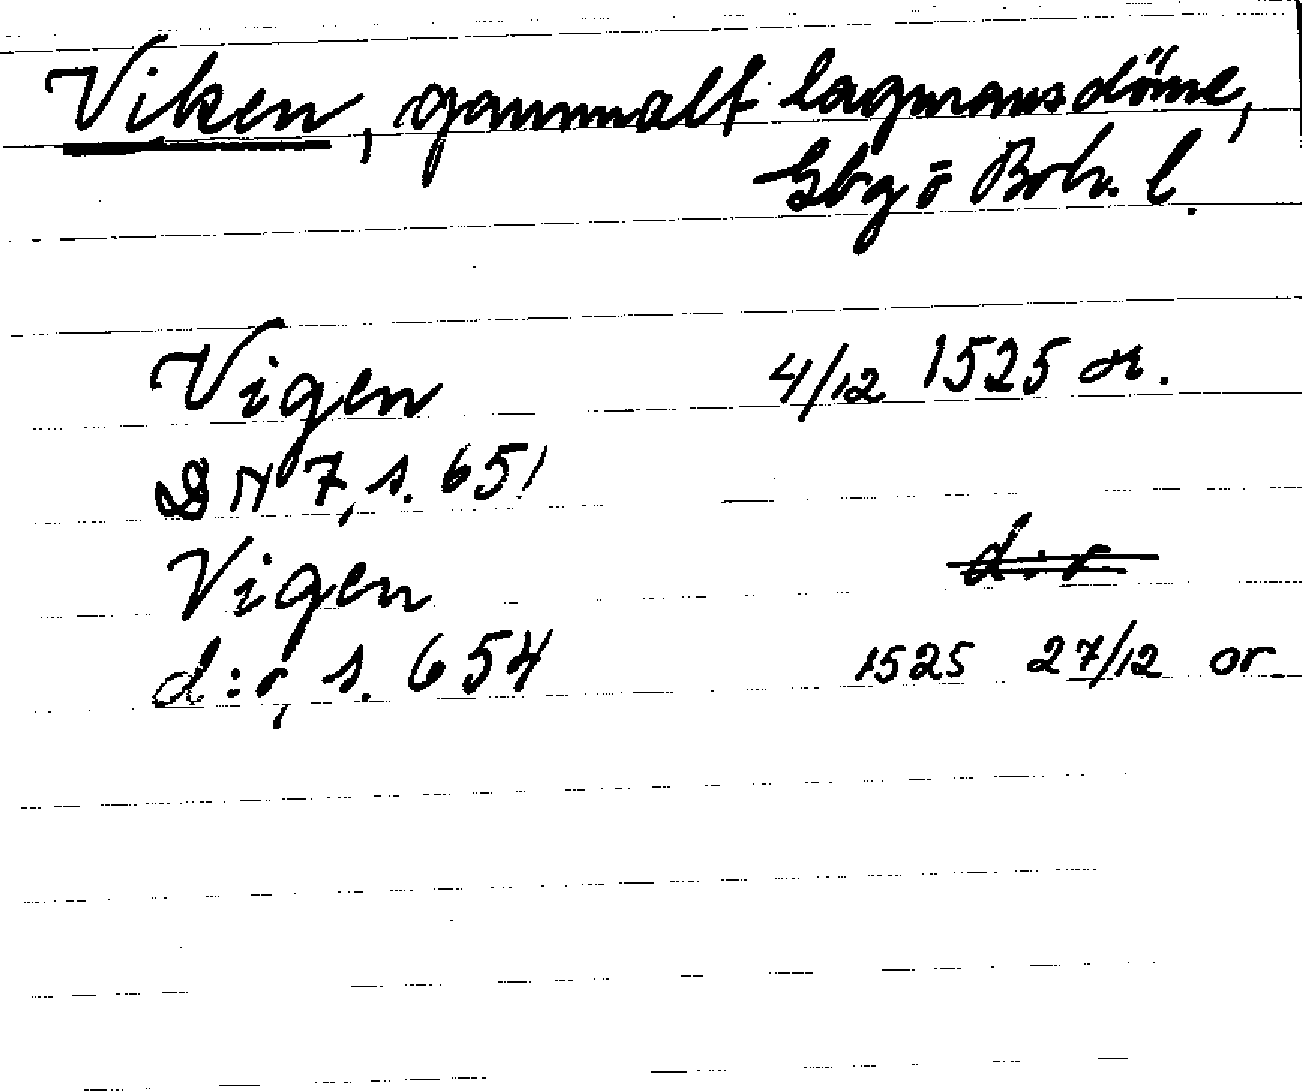 Viken, gammalt lagmansdöme,
Gbg o Boh. l.
Vigen 4/12 1525 or.
DN 7, s. 651
Vigen d:o
d:o, s. 654 1525 27/12 or